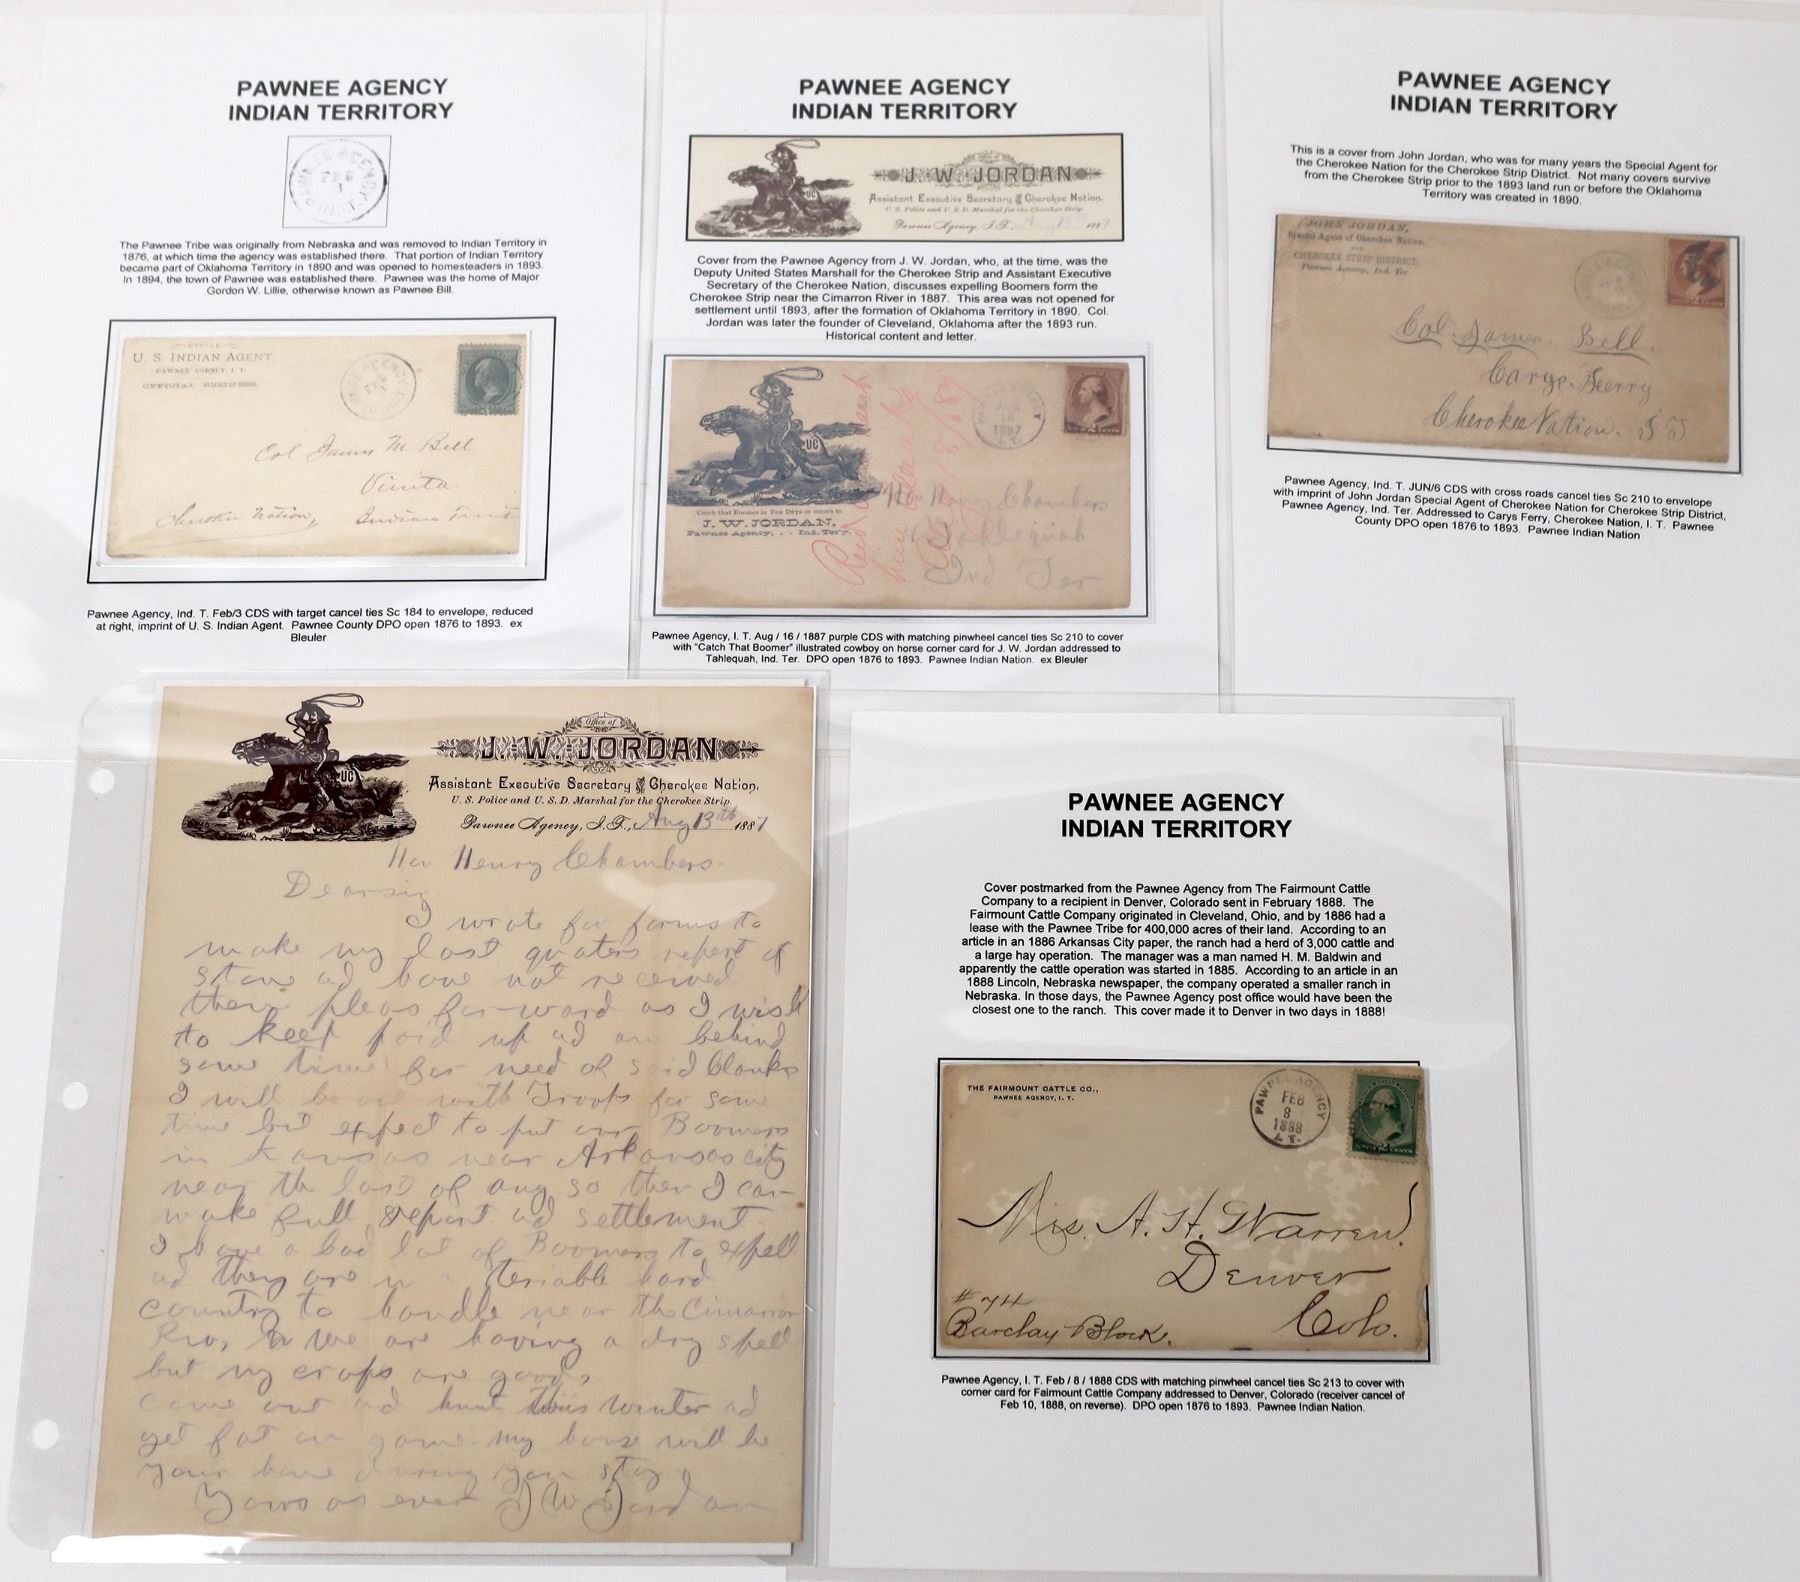 PAWNEE AGENCY
INDIAN TERRITORY
PAWNEE AGENCY
FEB
3
IND. T.
The Pawnee Tribe was originally from Nebraska and was removed to Indian Territory in
1876, at which time the agency was established there. That portion of Indian Territory
became part of Oklahoma Territory in 1890 and was opened to homesteaders in 1893.
In 1894, the town of Pawnee was established there. Pawnee was the home of Major
Gordon W. Lillie, otherwise known as Pawnee Bill.
OFFICE
U. S. INDIAN AGENT.
PAWNEE AGENCY, I. T.
OFFICIAL BUSINESS.
Col James M Bell
Vinita
Cherokee Nation, Indian Terrt
Pawnee Agency, Ind. T. Feb/3 CDS with target cancel ties Sc 184 to envelope, reduced
at right, imprint of U. S. Indian Agent. Pawnee County DPO open 1876 to 1893. ex
Bleuler
PAWNEE AGENCY
INDIAN TERRITORY
Office of
J. W. JORDAN
Assistant Executive Secretary of Cherokee Nation.
U. S. Police and U. S. D. Marshal for the Cherokee Strip.
Pawnee Agency, I. T., 1887
UC
Cover from the Pawnee Agency from J. W. Jordan, who, at the time, was the
Deputy United States Marshall for the Cherokee Strip and Assistant Executive
Secretary of the Cherokee Nation, discusses expelling Boomers form the
Cherokee Strip near the Cimarron River in 1887. This area was not opened for
settlement until 1893, after the formation of Oklahoma Territory in 1890. Col.
Jordan was later the founder of Cleveland, Oklahoma after the 1893 run.
Historical content and letter.
UC
Catch that Boomer in Ten Days or return to
J. W. JORDAN,
Pawnee Agency, - - Ind. Ter'y.
AUG
16
1887
I. T.
Hon Henry Chambers
Tahlequah
Ind Ter
Pawnee Agency, I. T. Aug / 16 / 1887 purple CDS with matching pinwheel cancel ties Sc 210 to cover
with "Catch That Boomer" illustrated cowboy on horse corner card for J. W. Jordan addressed to
Tahlequah, Ind. Ter. DPO open 1876 to 1893. Pawnee Indian Nation. ex Bleuler
PAWNEE AGENCY
INDIAN TERRITORY
This is a cover from John Jordan, who was for many years the Special Agent for
the Cherokee Nation for the Cherokee Strip District. Not many covers survive
from the Cherokee Strip prior to the 1893 land run or before the Oklahoma
Territory was created in 1890.
JOHN JORDAN,
Special Agent of Cherokee Nation,
FOR
CHEROKEE STRIP DISTRICT,
Pawnee Agency, Ind. Ter.
Col James. Bell.
Carys. Ferry
Cherokee Nation. I T
Pawnee Agency, Ind. T. JUN/6 CDS with cross roads cancel ties Sc 210 to envelope
with imprint of John Jordan Special Agent of Cherokee Nation for Cherokee Strip District,
Pawnee Agency, Ind. Ter. Addressed to Carys Ferry, Cherokee Nation, I. T. Pawnee
County DPO open 1876 to 1893. Pawnee Indian Nation
UC
Office of
J. W. JORDAN
Assistant Executive Secretary of Cherokee Nation,
U. S. Police and U. S. D. Marshal for the Cherokee Strip.
Pawnee Agency, I. T., Aug 13th 1887
Hon Henry Chambers
Dear sir
I wrote for forms to
make my last quaters report of
ad have not received
them pleas forward as I wish
to keep paid up ad am behind
some time for need of said blanks
I will be out with Troops for some
time but expect to put our Boomers
in Kansas near Arkansas city
near the last of aug so then I can
make full report ad settlement
I have a bad lot of Boomers to expell
ad they are in a teriable hard
country to handle near the Cimarron
we are having a dry spell
but my crops are good,
come out ad hunt this winter ad
get fat on game. my house will be
your home during your stay
Yours as ever J W Jordan
PAWNEE AGENCY
INDIAN TERRITORY
Cover postmarked from the Pawnee Agency from The Fairmount Cattle
Company to a recipient in Denver, Colorado sent in February 1888. The
Fairmount Cattle Company originated in Cleveland, Ohio, and by 1886 had a
lease with the Pawnee Tribe for 400,000 acres of their land. According to an
article in an 1886 Arkansas City paper, the ranch had a herd of 3,000 cattle and
a large hay operation. The manager was a man named H. M. Baldwin and
apparently the cattle operation was started in 1885. According to an article in an
1888 Lincoln, Nebraska newspaper, the company operated a smaller ranch in
Nebraska. In those days, the Pawnee Agency post office would have been the
closest one to the ranch. This cover made it to Denver in two days in 1888!
THE FAIRMOUNT CATTLE CO.,
PAWNEE AGENCY, I. T.
PAWNEE AGENCY
FEB
8
1888
I. T.
Mrs. A. H. Warren.
Denver
Colo.
# 74
Barclay Block.
Pawnee Agency, I. T. Feb / 8 / 1888 CDS with matching pinwheel cancel ties Sc 213 to cover with
corner card for Fairmount Cattle Company addressed to Denver, Colorado (receiver cancel of
Feb 10, 1888, on reverse). DPO open 1876 to 1893. Pawnee Indian Nation.